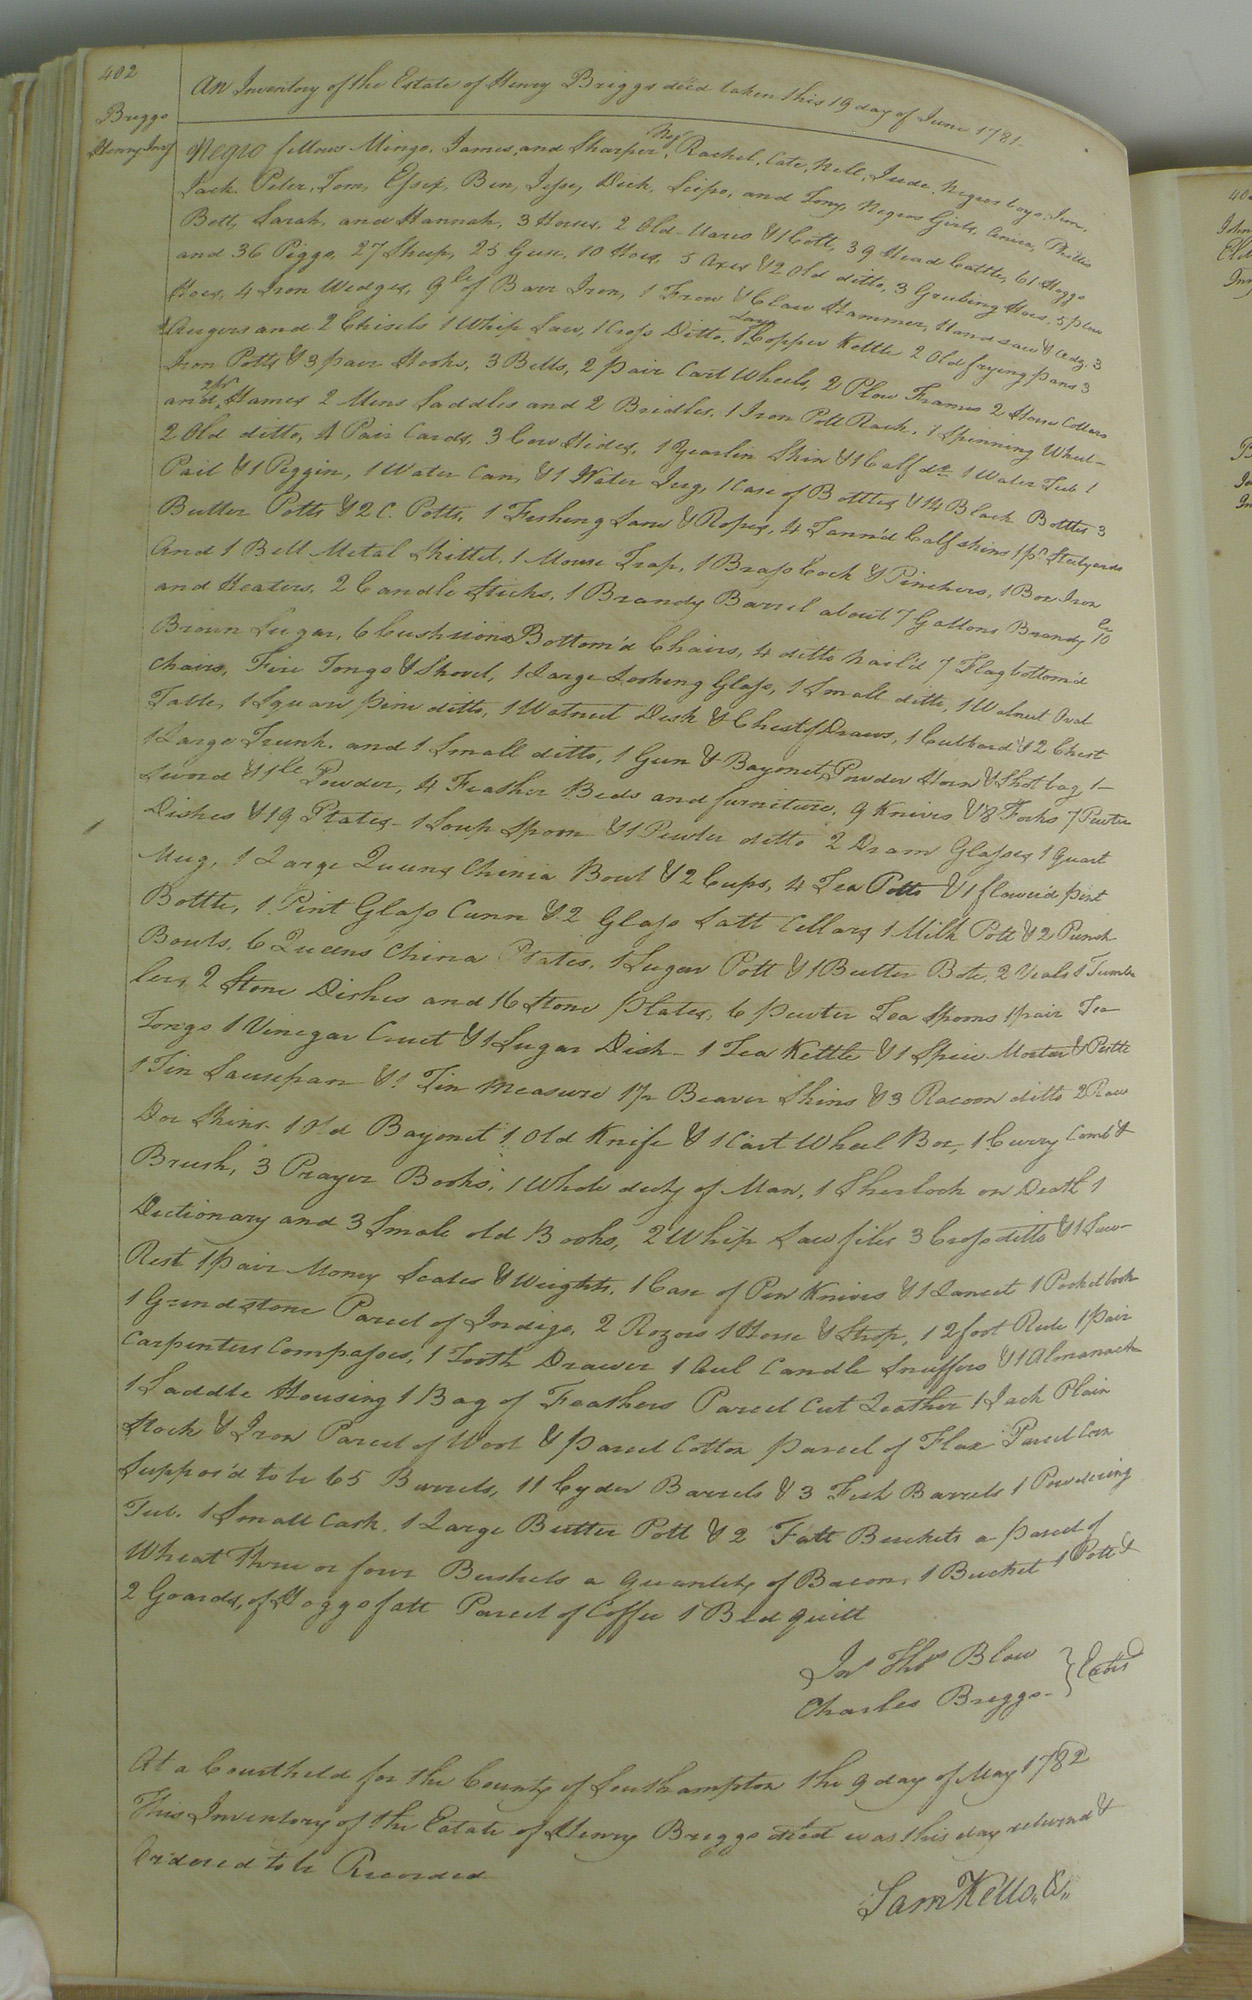 402
Briggs
Henry Invy
An Inventory of the Estate of Henry Briggs dec'd taken this 19 day of June 1781.
Negro fellows Mingo, James, and Sharper, Neg. Rachel, Cate, Nell, Jude, Negros boys, Jim,
Jack, Peter, Tom, Essex, Ben, Jesse, Dick, Scipo, and Tony, Negros Girls, Phillis
Bett, Sarah, and Hannah, 3 Horses, 2 Old Mares & 1 Colt, 39 Head Cattle, 61 Hoggs
and 36 Piggs, 27 Sheep, 25 Geese, 10 Hoes, 5 Axes & 2 Old ditto, 3 Grubing Hoes, 5 plow
Hoes, 4 Iron Wedges, 9 lb of Barr Iron, 1 Frow & Claw Hammer, Hand saw & Adz, 3
Augers and 2 Chisels 1 Whip Saw, 1 Cross Ditto, 1 Large Copper Kettle 2 Old frying pans 3
Iron Potts & 3 pair Hooks, 3 Bells, 2 pair Cart Wheels, 2 Plow Frames 2 Horse Collars
and Hames 2 Mens Saddles and 2 Bridles, 1 Iron Pott Rack, 1 Spinning Wheel
2 Old ditto, 4 Pair Cards, 3 Cow Hides, 1 Yearlin Skin & 1 Calf do 1 Water Tub 1
Pail & 1 Peggin, 1 Water Can, & 1 Water Jug, 1 Case of Bottles & 14 Black Bottles 3
Butter Potts & 2 C. Potts, 1 Fishing Sane & Ropes, 4 Tann'd Calf skins 1 pr Stilyards
And 1 Bell Metal Skillet, 1 Mouse Trap, 1 Brass Cock & Pinchers, 1 Box Iron
and Heaters, 2 Candle Sticks, 1 Brandy Barrel about 7 Gallons Brandy & 10
Brown Sugar, 6 Cushsions Bottom'd Chairs, 4 ditto nail'd 7 Flag bottom'd
Chairs, Fire Tongs & Shovel, 1 Large Looking Glass, 1 Small ditto, 1 Walnut Oval
Table, 1 Square pine ditto, 1 Walnut Desk & Chest of Draws, 1 Cubbard & 2 Chest
1 Large Trunk, and 1 Small ditto, 1 Gun & Bayonet, Powder Horn & Shot bag, 1
Sword & 1 lb Powder, 4 Feather Beds and furniture, 9 Knives & 8 Forks 7 Pewter
Dishes & 19 Plates 1 Soup Spoon & 1 Pewter ditto 2 Dram Glasses 1 Quart
Mug, 1 Large Queens Chinia Bowl & 2 Cups, 4 Tea Potts & 1 flower'd pint
Bottle, 1 Pint Glass Cann & 2 Glass Salt Cellars 1 Milk Pott & 2 Punch
Bowls, 6 Queens China Plates, 1 Sugar Pott & 1 Butter Bote, 2 Vials 1 Tumb
lers, 2 Stone Dishes and 16 Stone Plates, 6 Pewter Tea Spoons 1 pair Tea
Tongs 1 Vinegar Cruet & 1 Sugar Dish 1 Tea Kettle & 1 Spice Mortar & Pestle
1 Tin Sausepan & 1 Tin Measure 17 Beaver Skins & 3 Racoon ditto 2 Raw
Doe Skins 1 Old Bayonet 1 Old Knife & 1 Cart Wheel Box, 1 Curry Comb &
Brush, 3 Prayer Books, 1 Whole duty of Man, 1 Sherlock on Death 1
Dictionary and 3 Smale old Books, 2 Whip Saw files 3 Cross ditto & 1 Saw
Rest 1 pair Money Scales & Weights, 1 Case of Pen Knives & 1 Lancet 1 Pocketbook
1 Grindstone Parcel of Indigo, 2 Rozors 1 Hone & Strop, 1 2 foot Rule 1 pair
Carpenters Compasses, 1 Tooth Drawer 1 Aul Candle Snuffers & 1 Almanack
1 Saddle Housing 1 Bag of Feathers Parcel Cut Leather 1 Jack Plain
Stock & Iron Parcel of Wool & parcel Cotton parcel of Flax Parcel Corn
Suppos'd to be 65 Barrels, 11 Cyder Barrels & 3 Fish Barrels 1 Powdering
Tub. 1 Small Cask, 1 Large Butter Pott & 2 Fatt Buckets a parcel of
Wheat Three or four Bushels a quantity of Bacon, 1 Bucket 1 Pott &
2 Goards, of Hoggs fatt Parcel of Coffee 1 Bed quilt
Jno Thos Blow
Charles Briggs } Exors
At a Court held for the County of Southampton the 9 day of May 1782
This Inventory of the Estate of Henry Briggs dec'd was this day returned &
Ordered to be Recorded
Sam Kello,, Cl,,